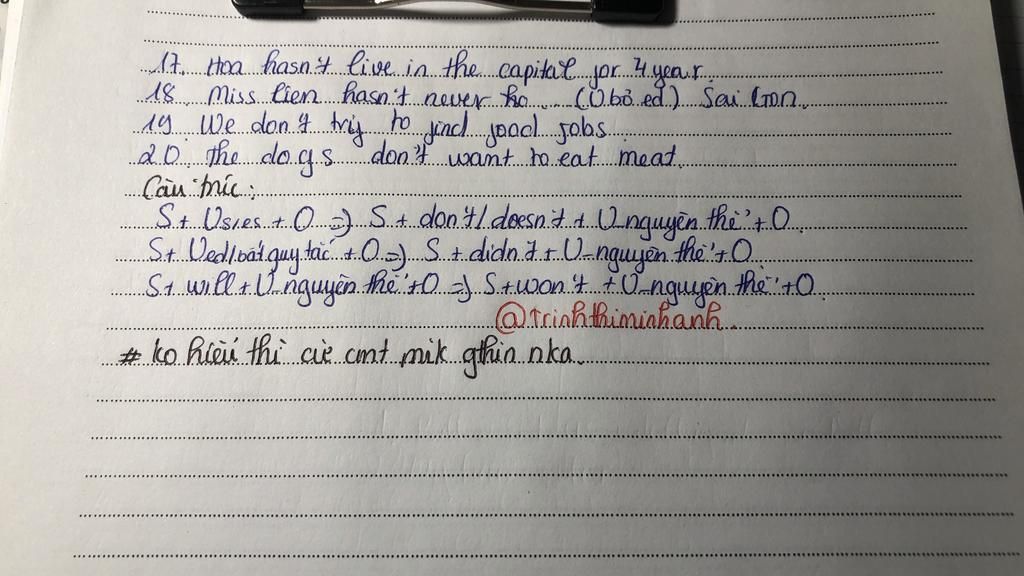 17. Hoa hasn't live in the capital for 4 year.
18. Miss lien hasn't never ... (V bỏ ed) Sai Gon.
19 We don't try to find good jobs
20. The dogs don't want to eat meat.
Cấu trúc:
S + Vs/es + O => S + don't/doesn't + V_nguyên thể + O.
S+ Ved/bất quy tắc + O => S + didn't + V-nguyên thể + O
S+ will + V_nguyên thể + O => S+won't + V-nguyên thể + O
@trinhthiminhanh.
# ko hiểu thì cứ cmt mik gthin nka.